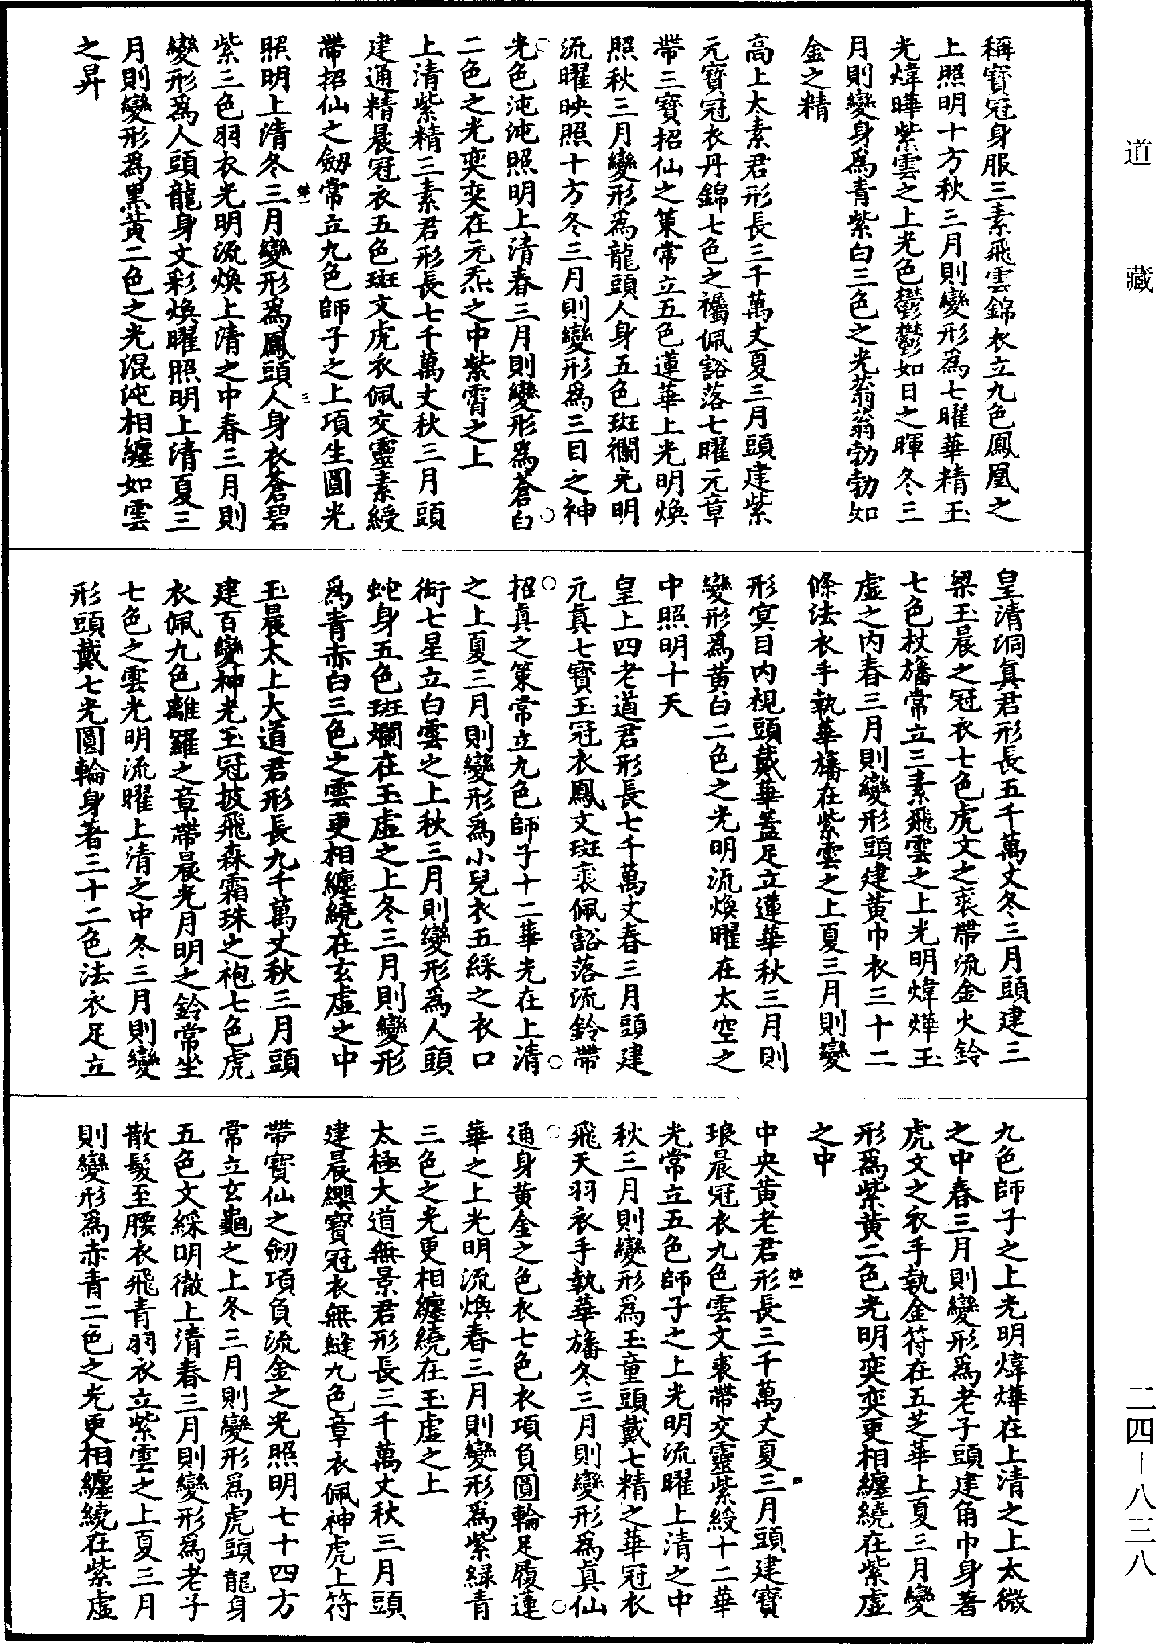 道藏
稱寶冠身服三素飛雲錦衣立九色鳳凰之
上照明十方秋三月則變形為七曜華精玉
光煒曄紫雲之上光色鬱鬱如日之暉冬三
月則變身為青紫白三色之光蓊蓊勃勃如
金之精
高上太素君形長三千萬丈夏三月頭建紫
元寶冠衣丹錦七色之襡佩豁落七曜元章
帶三寶招仙之策常立五色蓮華上光明煥
照秋三月變形爲龍頭人身五色斑爛充明
流曜映照十方冬三月則變形為三日之神
光色沌沌照明上清春三月則變形爲蒼白
二色之光奕奕在元炁之中紫霄之上
上清紫精三素君形長七千萬丈秋三月頭
建通精晨冠衣五色斑文虎衣佩交靈素綬
帶招仙之劒常立九色師子之上項生圓光
照明上清冬三月變形為鳳頭人身衣蒼碧
紫三色羽衣光明流煥上清之中春三月則
變形爲人頭龍身文彩煥曜照明上清夏三
月則變形爲黑黃二色之光混沌相纏如雲
之昇
皇清洞真君形長五千萬丈冬三月頭建三
梁玉晨之冠衣七色虎文之裘帶流金火鈴
七色杖旛常立三素飛雲之上光明煒燁玉
虛之內春三月則變形頭建黃巾衣三十二
條法衣手執華旛在紫雲之上夏三月則變
形冥目內視頭戴華蓋足立蓮華秋三月則
變形爲黃白二色之光明流煥曜在太空之
中照明十天
皇上四老道君形長七千萬丈春三月頭建
元真七寶玉冠衣鳳文斑裘佩豁落流鈴帶
招真之策常立九色師子十二華光在上清
之上夏三月則變形為小兒衣五綵之衣口
銜七星立白雲之上秋三月則變形為人頭
蛇身五色斑爛在玉虛之上冬三月則變形
爲青赤白三色之雲更相纏繞在玄虛之中
玉晨太上大道君形長九千萬丈秋三月頭
建百變神光玉冠披飛森霜珠之袍七色虎
衣佩九色離羅之章帶晨光月明之鈴常坐
七色之雲光明流曜上清之中冬三月則變
形頭戴七光圓輪身著三十二色法衣足立
九色師子之上光明煒燁在上清之上太微
之中春三月則變形為老子頭建角巾身著
虎文之衣手執金符在五芝華上夏三月變
形爲紫黃二色光明奕奕更相纏繞在紫虛
之中
中央黃老君形長三千萬丈夏三月頭建寶
琅晨冠衣九色雲文裘帶交靈紫綬十二華
光常立五色師子之上光明流曜上清之中
秋三月則變形爲玉童頭戴七精之華冠衣
飛天羽衣手執華旛冬三月則變形爲真仙
通身黃金之色衣七色衣項負圓輪足履蓮
華之上光明流煥春三月則變形為紫緑青
三色之光更相纏繞在玉虛之上
太極大道無景君形長三千萬丈秋三月頭
建晨纓寶冠衣無縫九色章衣佩神虎上符
帶寶仙之劒項負流金之光照明七十四方
常立玄龜之上冬三月則變形爲虎頭龍身
五色文綵明徹上清春三月則變形為老子
散髮至腰衣飛青羽衣立紫雲之上夏三月
則變形爲赤青二色之光更相纏繞在紫虛
二四－八三八